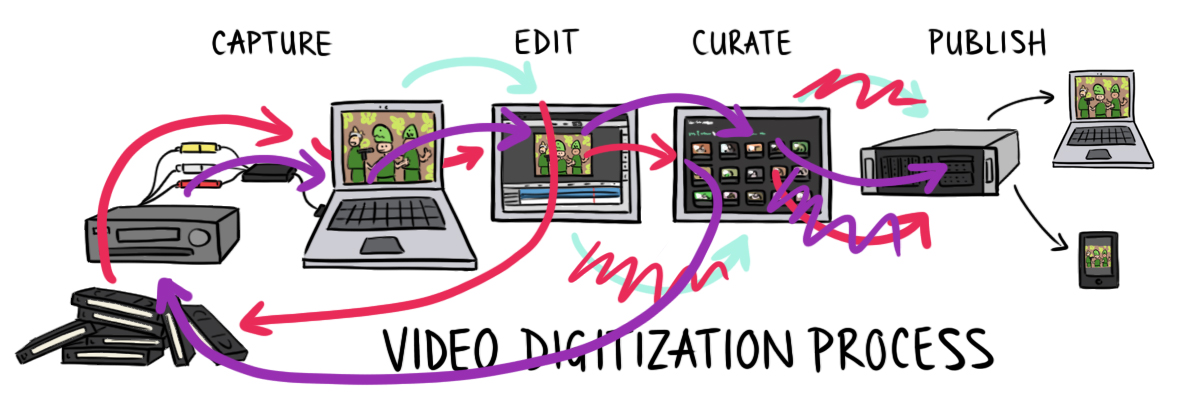 CAPTURE EDIT CURATE PUBLISH
VIDEO DIGITIZATION PROCESS